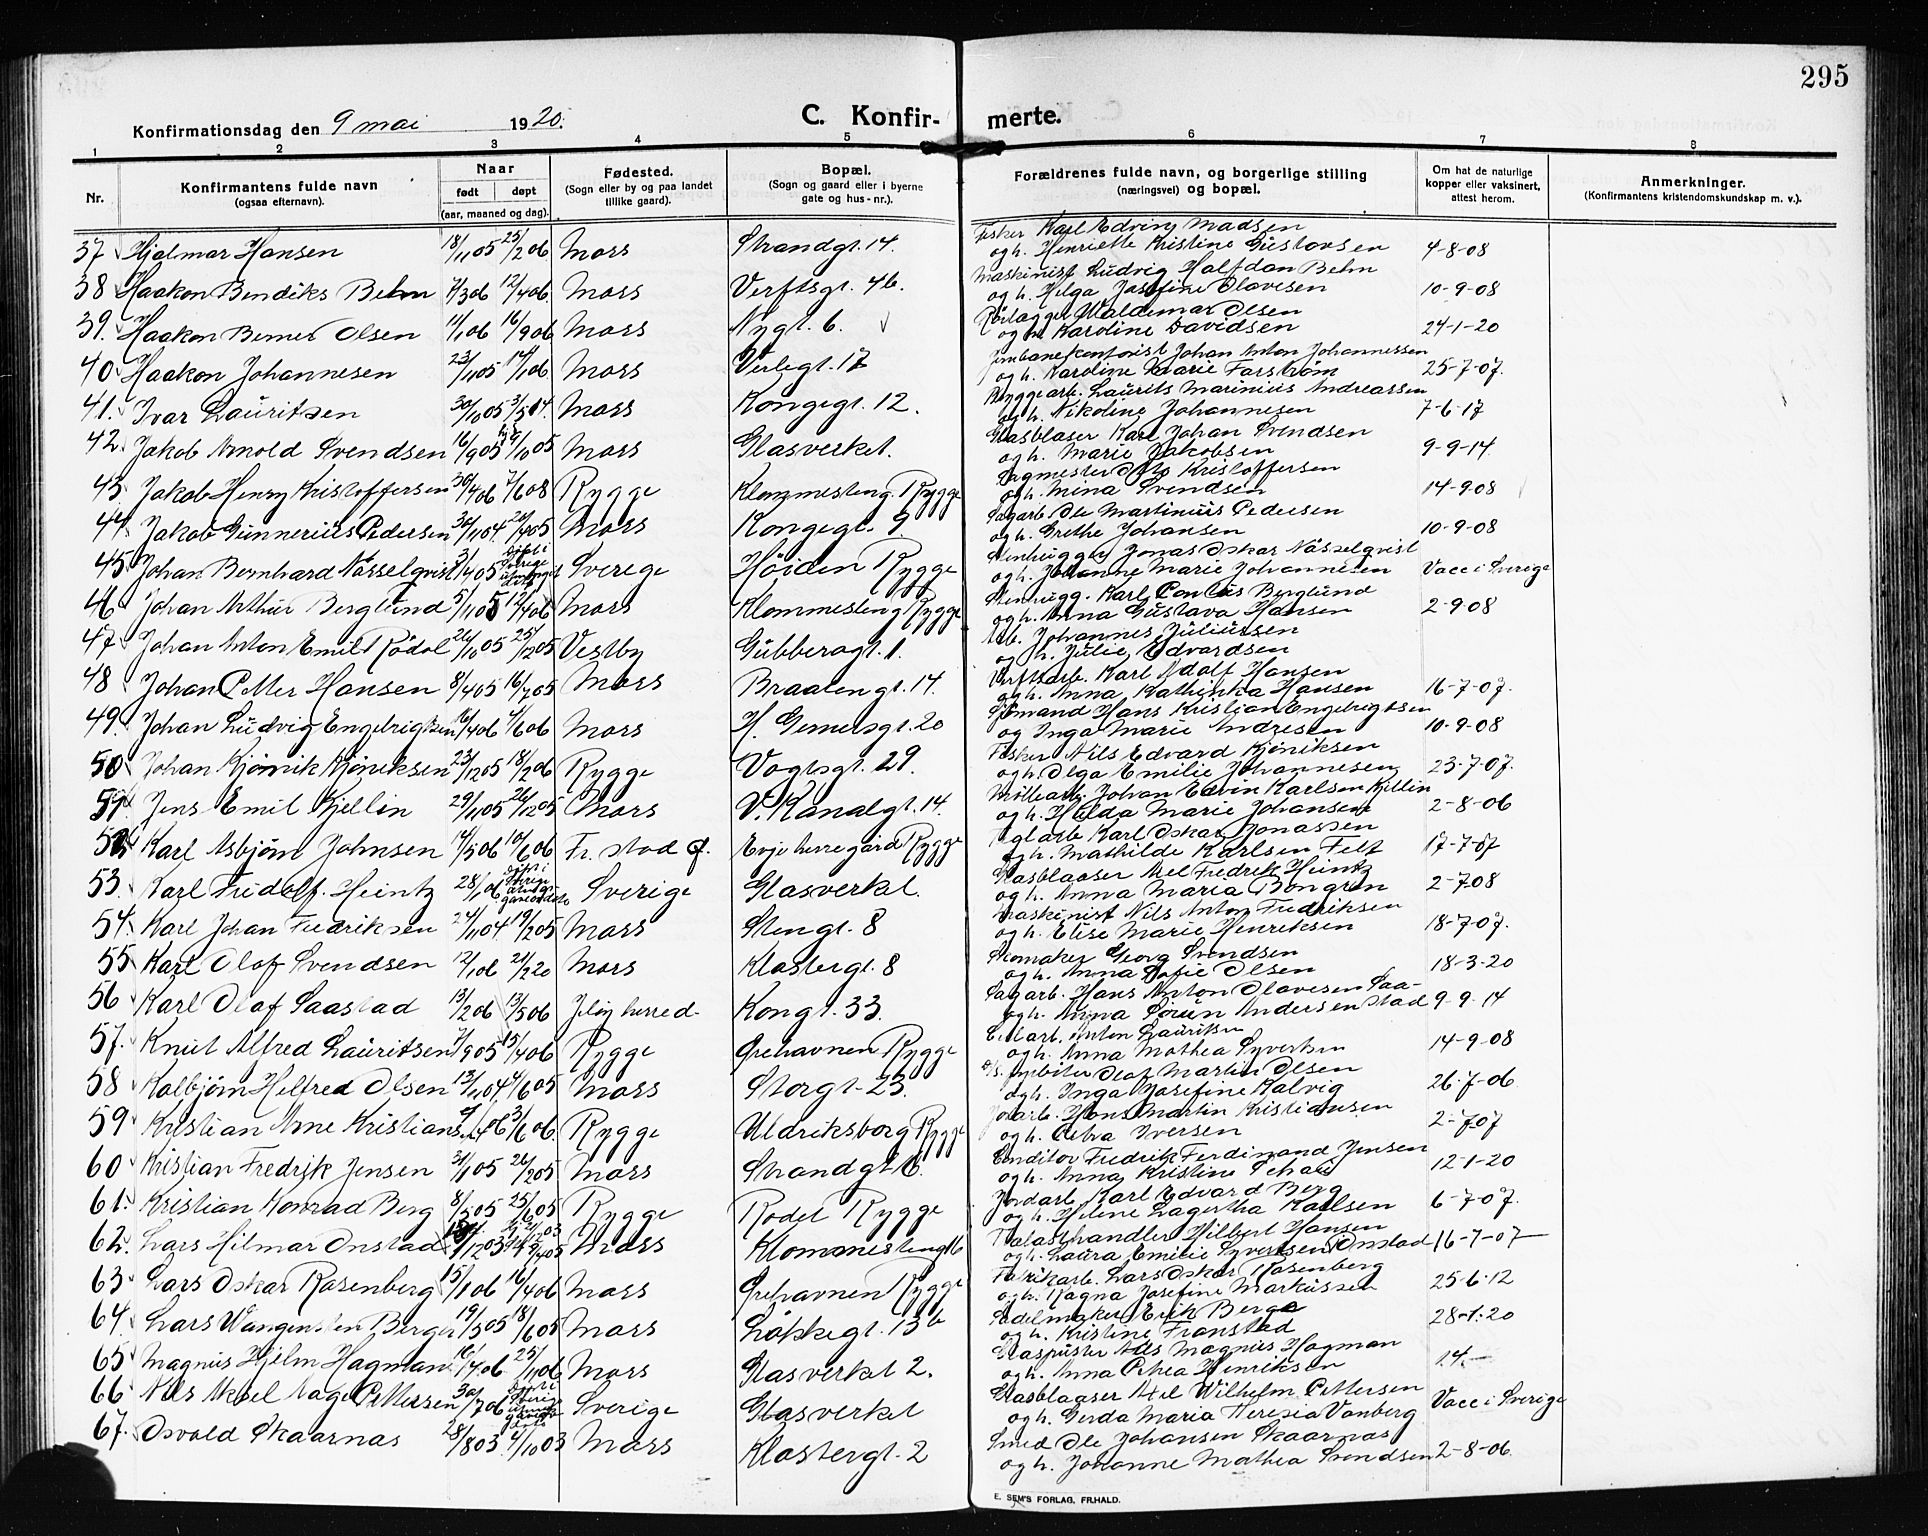 295
Konfirmationsdag den 9 mai 1920.
C. Konfirmerte.
1 2 3 4 5 6 7 8
Nr.
Konfirmantens fulde navn
(ogsaa efternavn).
Naar
født døpt
(aar, maaned og dag).
Fødested.
(Sogn eller by og paa landet
tillike gaard).
Bopæl.
(Sogn og gaard eller i byerne
gate og hus-nr.).
Forældrenes fulde navn, og borgerlige stilling
(næringsvei) og bopæl.
Om hat de naturlige
kopper eller vaksinert,
attest herom.
Anmerkninger.
(Konfirmantens kristendomskundskap m. v.).
Fisker Karl Edvin Madsen
37 Hjalmar Hansen 18/11 05 25/2 06 Moss Strandgt. 14. og h. Henriette Kristine Gustavsen 4-8-08
Maskinist Ludvig Halfdan Behn
38 Haakon Bendiks Behn 7/3 06 12/4 06 Moss Verftsgt. 46. og h. Helga Josefine Olavesen 10-9-08
Rørlægger Valdemar Olsen
39. Haakon Olsen 11/1 06 16/9 06 Moss Nygt. 6. og h. Karoline Davidsen 24-1-20
Jernbanekontorist Johan Anton Johannessen
40 Haakon Johannesen 23/11 05 14/1 06 Moss Verlegt. 17 og h. Karoline Marie Farstrøm 25-7-07.
Bryggearb. Laurits Marinius Andreassen
41. Ivar Lauritsen 30/10 05 3/5 14. Moss Kongegt. 12. og h. Nikoline Johannesen 7-6-17
Glasblaser Karl Johan Svendsen
42. Jakob Arnold Svendsen 16/9 05 /10 05 Moss Glasverket. og h. Marie Jakobsen 9-9-14
Otto Kristoffersen
43. Jakob Henry Kristoffersen 30/4 06 7/6 08 Rygge Klommesteng. Rygge og h. Mina Svendsen 14-9-08
Sagarb. Ole Martinius Pedersen
44. Jakob Gunnerius Pedersen 30/11 04. Moss Kongegt. 9. og h. Grethe Johansen 10-9-08
Stenhugger Jonas Oskar Nässelqvist
45. Johan Bernhard Nässelqvist 3/4 05 døpt i Sverige Sverige Höiden Rygge og h. Johanne Marie Johannesen Vacc i Sverige
Stenhugg. Karl Pontus Berglund
46 Johan Arthur Berglund 5/11 05 12/4 06 Moss Klommesteng Rygge og h. Anna Gustava Hansen 2-9-08
Arb. Johannes Juliussen
47 Johan Anton Emil Rödal 26/10 05 25/12 05 Vestby Gubberogt. 1. og h. Julie Edvardsen
Verftsarb. Karl Adolf Hansen
48 Johan Petter Hansen 8/4 05 16/7 05 Moss Braatengt. 14. og h. Anna Kathinka Hansen 16-7-07.
Sjømand Hans Kristian Engebrigtsen
49. Johan Ludvig Engebrigtsen 16/4 06 4/6 06 Moss H. Gernersgt. 20 og Inga Marie Andresen 10-9-08
Fisker Nils Edvard Kjöniksen
50 Johan Kjönnik Kjöniksen 23/12 05 18/2 06 Rygge Vogtsgt. 29. og h. Olga Emilie Johannesen 23-7-07.
Møllearb. Johan Edvin Karlsen Kjellin
51. Jens Emil Kjellin 29/11 05 26/12 05 Moss V. Kanalgt. 14. og h. Hulda Marie Johansen 2-8-06
Teglarb Karl Oskar Jonassen
52. Karl Asbjørn Johnsen 14/5 06 10/6 06 Fr. stad Evje herregård Rygge og h. Mathilde Karlsen Felt 17-7-07
Glasblaaser Axel Fredrik Heintz
53. Karl Fridolf. Heintz 28/1 06 døpt i Sverige Sverige Glasverket. og h. Anna Maria Bongren 2-7-08
Maskinist Nils Anton Fredriksen
54. Karl Johan Fredriksen 24/11 04. 19/2 05 Moss Stengt. 8 og h. Elise Marie Henriksen 18-7-07.
Skomaker Georg Svendsen
55 Karl Olaf Svendsen 12/1 06 21/2 20 Moss Klostergt. 8 og h. Anna Sofie Olsen 18-3-20
Sagarb. Hans Anton Olavesen Saa-
56 Karl Olaf Saastad 13/2 06 13/5 06 Jeløy herred. Kongt. 33. og h. Anna Andersen stad 9-9-14
Anton Lauritsen
57. Knut Alfred Lauritsen 7/9 05 15/4 06 Rygge Ørehavnen Rygge og h. Anna Mathea Syvertsen 14-9-08
Olaf Martin Olsen
58 Kolbjörn Helfred Olsen 13/11 04 4/6 05 Moss Storgt. 23. og h. Inga Josefine Kalvig 26-7-06
Jordarb. Hans Martin Kristiansen
59 Kristian Arne Kristiansen 3/6 06. Rygge Uldriksborg Rygge og h. Iversen 2-7-07
Konditor Fredrik Ferdinand Jensen
60 Kristian Fredrik Jensen 31/1 05 26/2 05 Moss Strandgt 6. og h. Anna Kristine 12-1-20
Jordarb. Karl Edvard Berg
61. Kristian Konrad Berg 8/5 05 25/6 05 Rygge Rødet Rygge og h. Helene Lagertha Karlsen 6-7-07.
Hilbert Hansen
62. Lars Hilmar Onstad /12 03 Moss Klommesteng 16 og h. Laura Emilie Syvertsen Onstad 16-7-07
Fabrikarb. Lars Oskar Rosenberg
63 Lars Oskar Rosenberg 15/1 06 16/4 06 Moss Ørehavnen Rygge og h. Ragna Josefine Markussen 25-6-12
Sadelmaker Erik Berge
64. Lars Wangensten Berge 19/5 05 18/6 05 Moss Løkkegt. 13b og h. Kristine Tronstad 28-1-20
Glaspuster Nils Magnus Hagman
65 Magnus Hjelm Hagman 16/4 06. 25/11 06 Moss Glasverket 2. og h. Anna Petrea Henriksen 14.
Glasblaaser Axel Wilhelm Pettersen
66 Nils Aksel Aage Pettersen 30/7 06 døpt i Sverige Sverige Glasverket og h. Gerda Maria Theresia Vanberg Vacc i Sverige
Smed Ole Johansen Skaarnas
67. Osvald Skaarnas 28/8 03. 4/10 03 Moss Klostergt. 2 og h. Johanne Mathea Svendsen 2-8-06.
E. SEM'S FORLAG, FR.HALD.